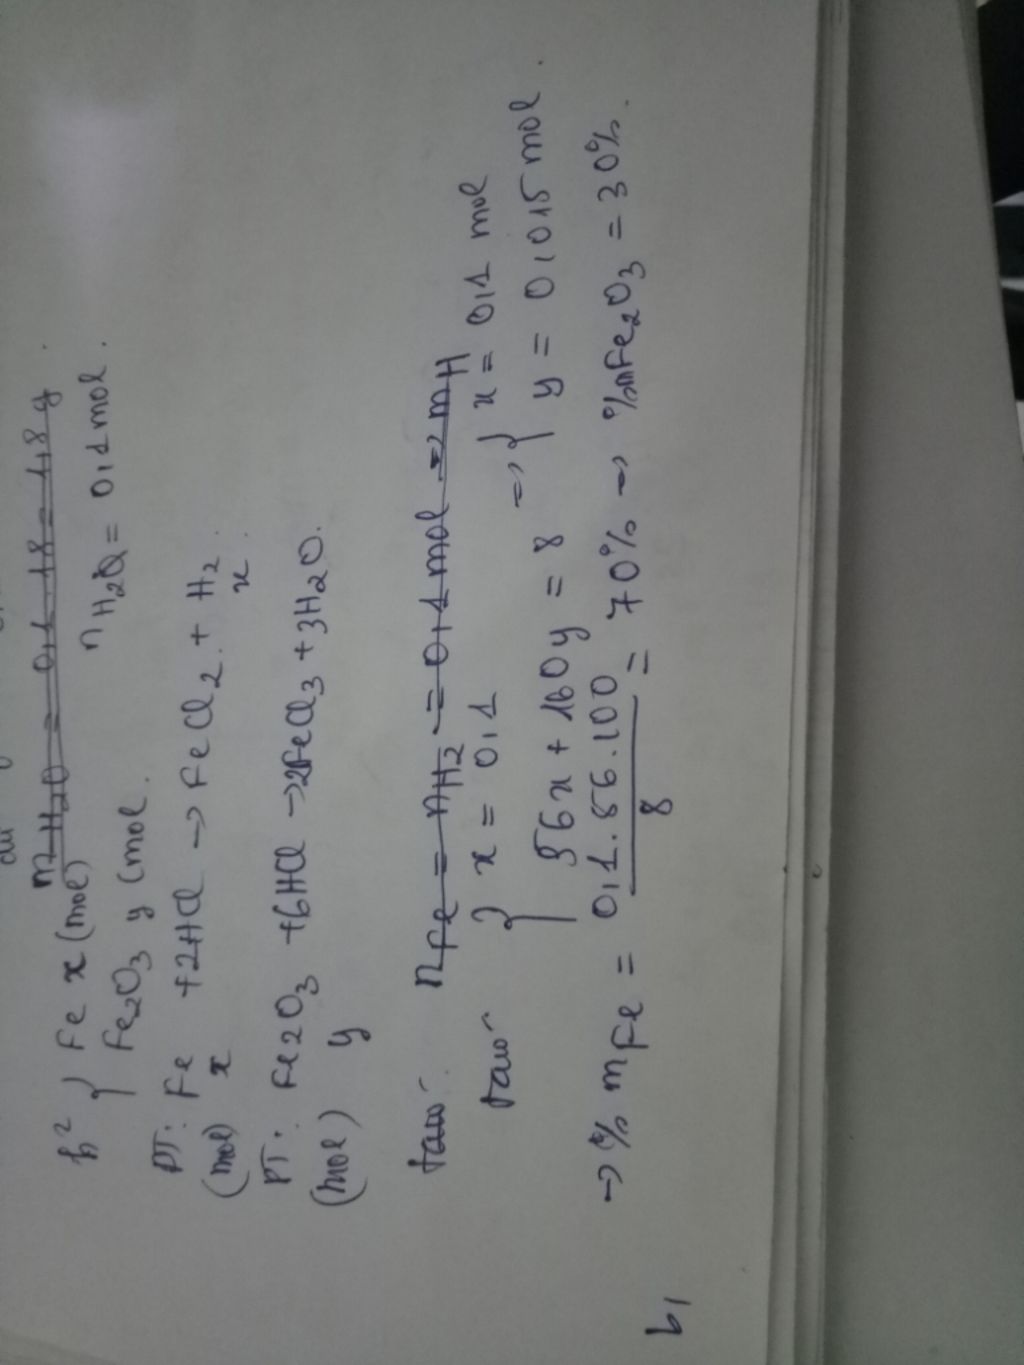 n H2O = 0,1.18 = 1,8 g.
h² { Fe x (mol)
Fe2O3 y (mol.
n H2O = 0,1 mol.
PT: Fe +2HCl → FeCl2 + H2
(mol) x x.
PT: Fe2O3 +6HCl → 2FeCl3 + 3H2O.
(mol) y
nFe = nH2 = 0,1 mol → mH
{ x = 0,1
56x + 160y = 8 => { x = 0,1 mol
y = 0,015 mol.
→ % mFe = 0,1.56.100 / 8 = 70% → %mFe2O3 = 30%.
b,